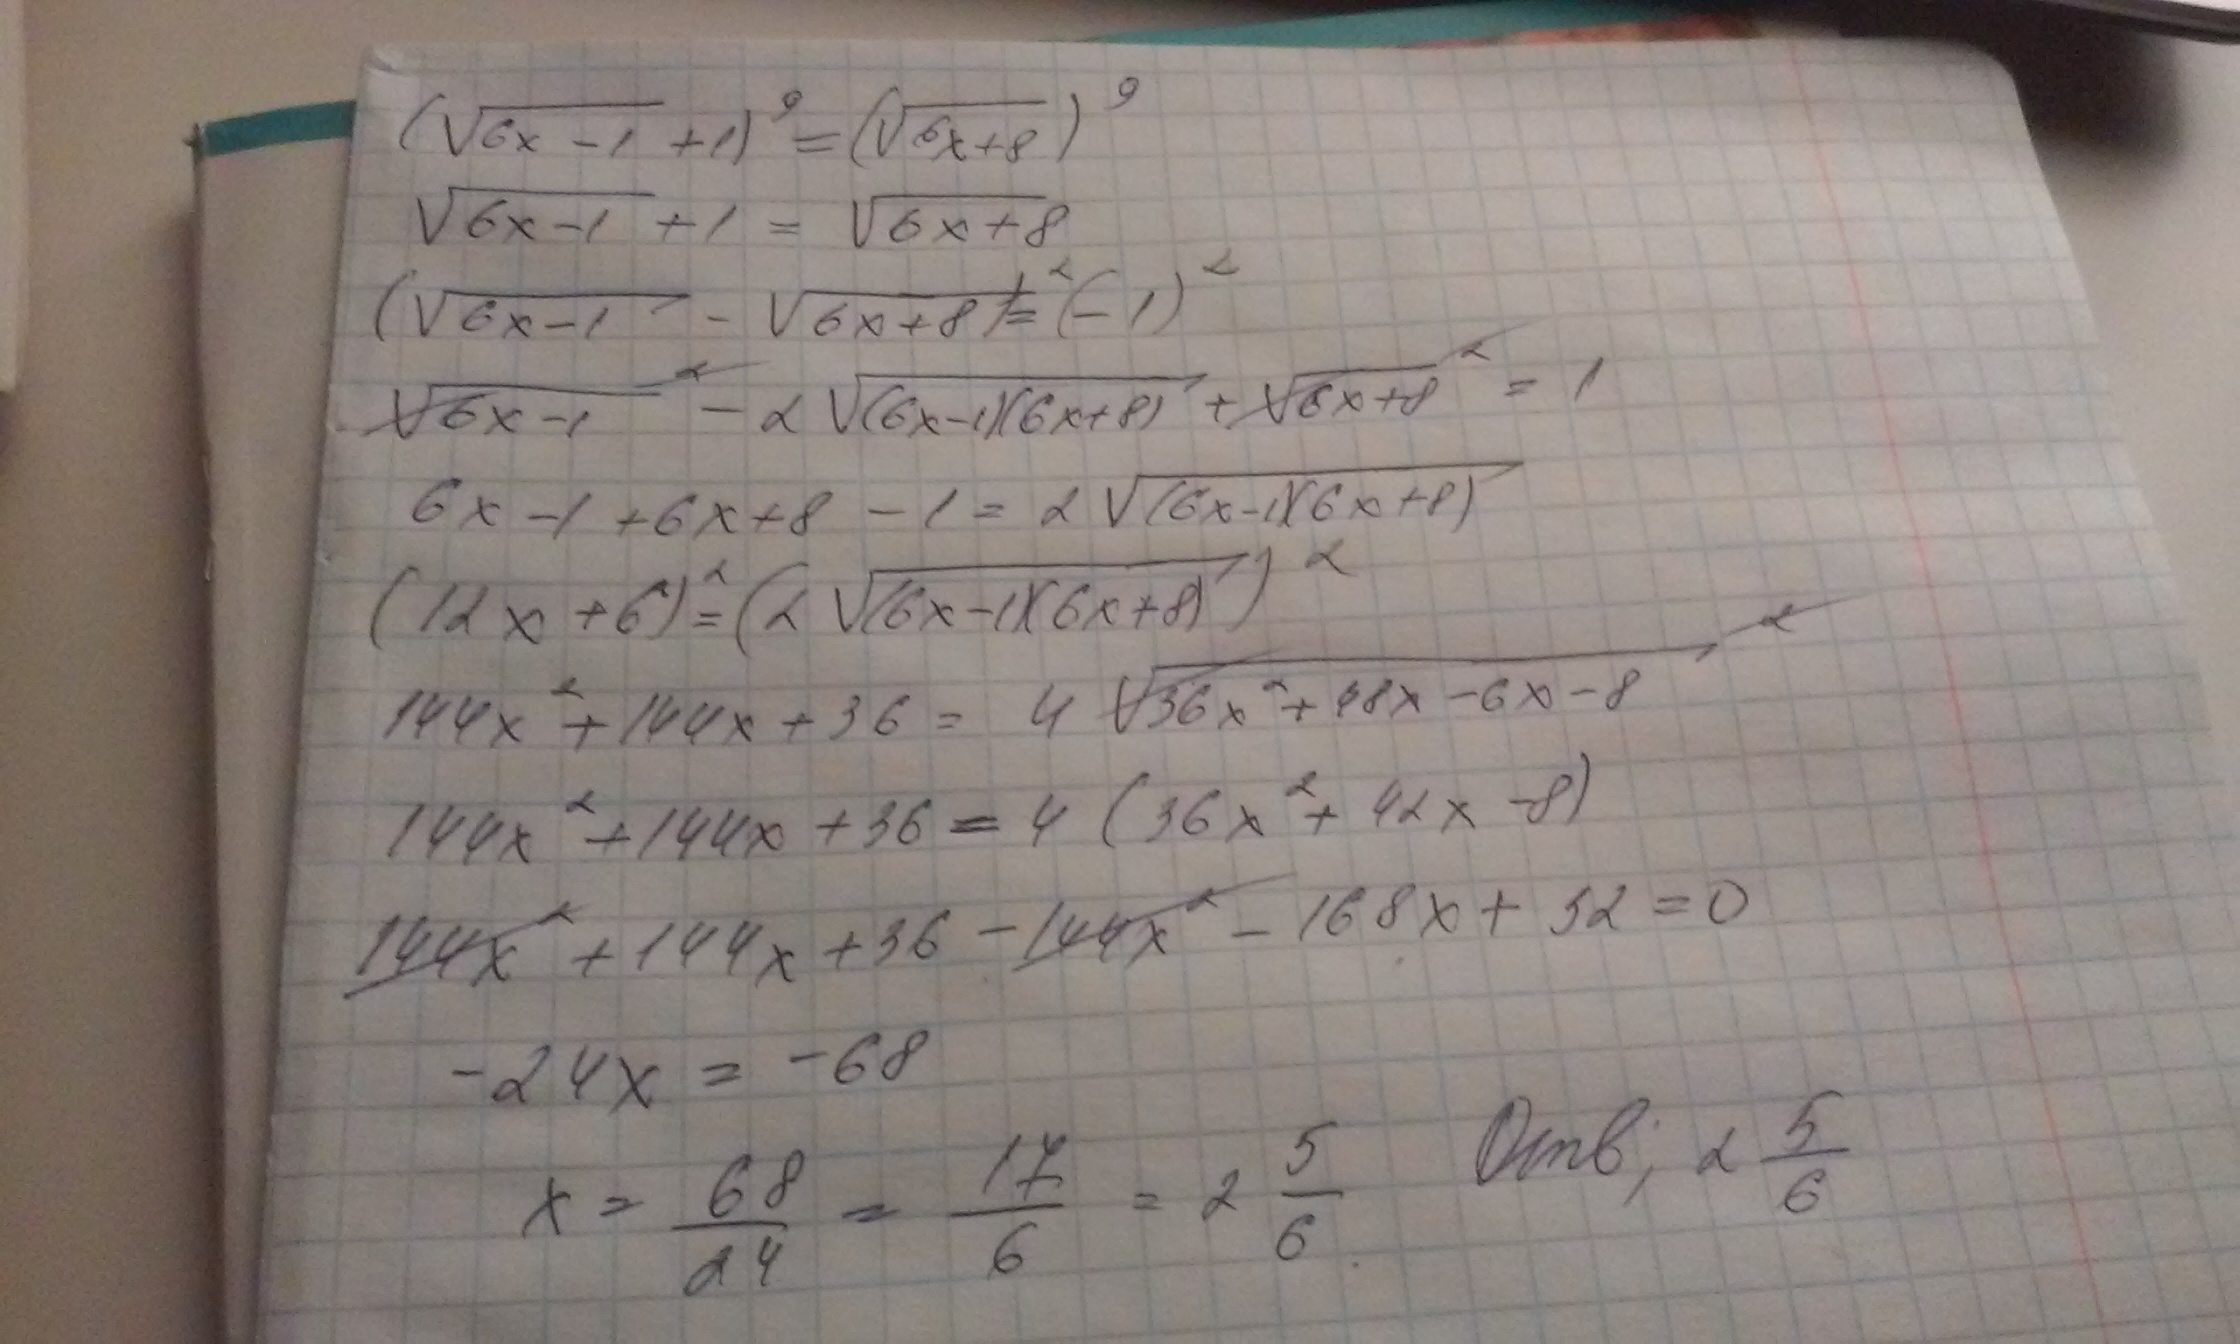 (√(6x-1) +1)⁹ = (√(6x+8))⁹
√(6x-1) +1 = √(6x+8)
(√(6x-1) - √(6x+8))² = (-1)²
√(6x-1)² - 2√((6x-1)(6x+8)) + √(6x+8)² = 1
6x-1+6x+8-1 = 2√((6x-1)(6x+8))
(12x+6)² = (2√((6x-1)(6x+8)))²
144x²+144x+36 = 4√(36x²+48x-6x-8)²
144x²+144x+36 = 4(36x²+42x-8)
144x²+144x+36-144x²-168x+32=0
-24x = -68
x = 68/24 = 17/6 = 2 5/6 Отв; 2 5/6